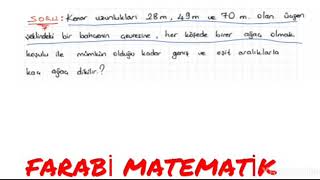 SORU: Kenar uzunlukları 28m, 49m ve 70 m. olan üçgen
şeklindeki bir bahçenin çevresine, her köşede birer ağaç olmak
koşulu ile mümkün olduğu kadar geniş ve eşit aralıklarla
kaç ağaç dikilir?
FARABİ MATEMATİK